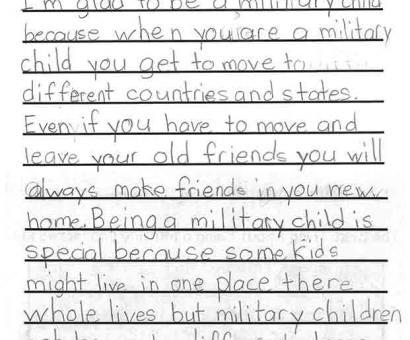 I'm glad to be a military child
because when you are a military
child you get to move to
different countries and states.
Even if you have to move and
leave your old friends you will
always make friends in you new
home. Being a military child is
special because some kids
might live in one place there
whole lives but military children